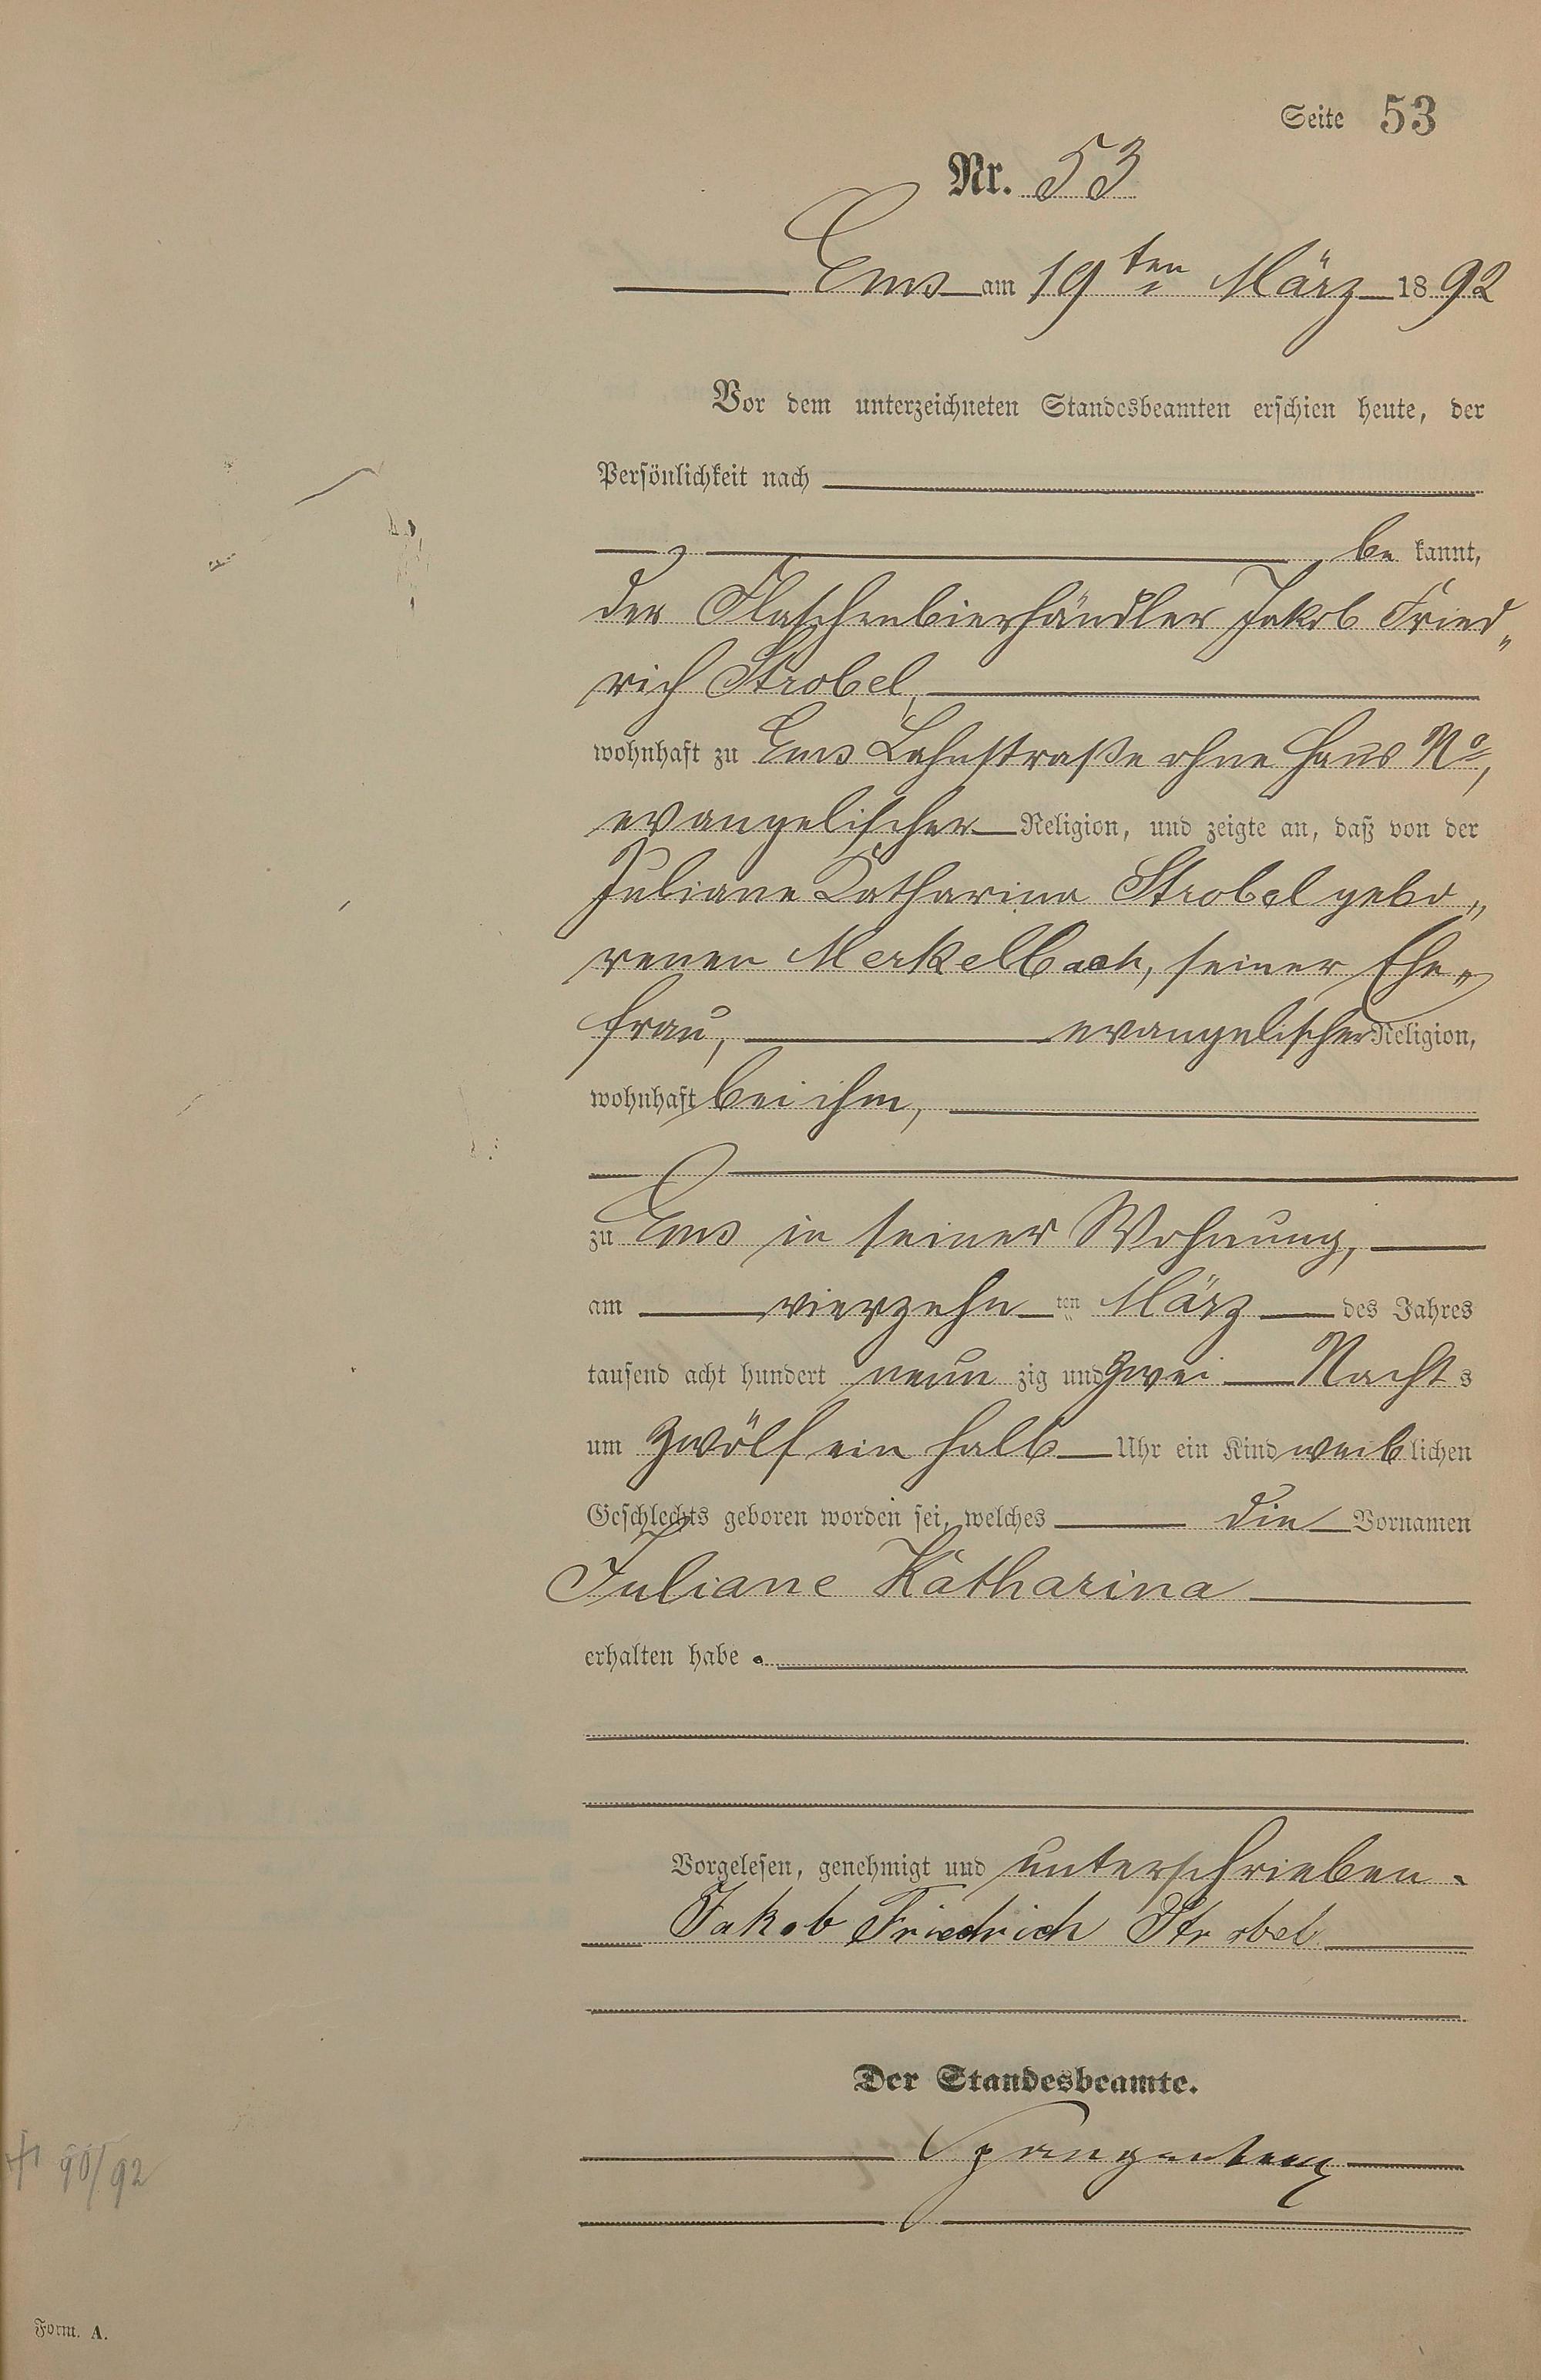 Seite 53
Nr. 53
Ems am 19ten März 1892
Vor dem unterzeichneten Standesbeamten erschien heute, der
Persönlichkeit nach
be kannt,
der Flaschenbierhändler Jakob Fried„
rich Strobel,
wohnhaft zu Ems Lahnstraße ohne Haus No,
evangelischer Religion, und zeigte an, daß von der
Juliane Katharina Strobel gebo„
renen Merkelbach, seiner Ehe„
frau, evangelischer Religion,
wohnhaft bei ihm,
zu Ems in seiner Wohnung,
am vierzehn ten März des Jahres
tausend acht hundert neun zig und zwei Nacht s
um zwölf ein halb Uhr ein Kind weib lichen
Geschlechts geboren worden sei, welches die Vornamen
Juliane Katharina
erhalten habe.
Vorgelesen, genehmigt und unterschrieben.
Jakob Friedrich Strobel
Der Standesbeamte.
† 90/92
Form. A.